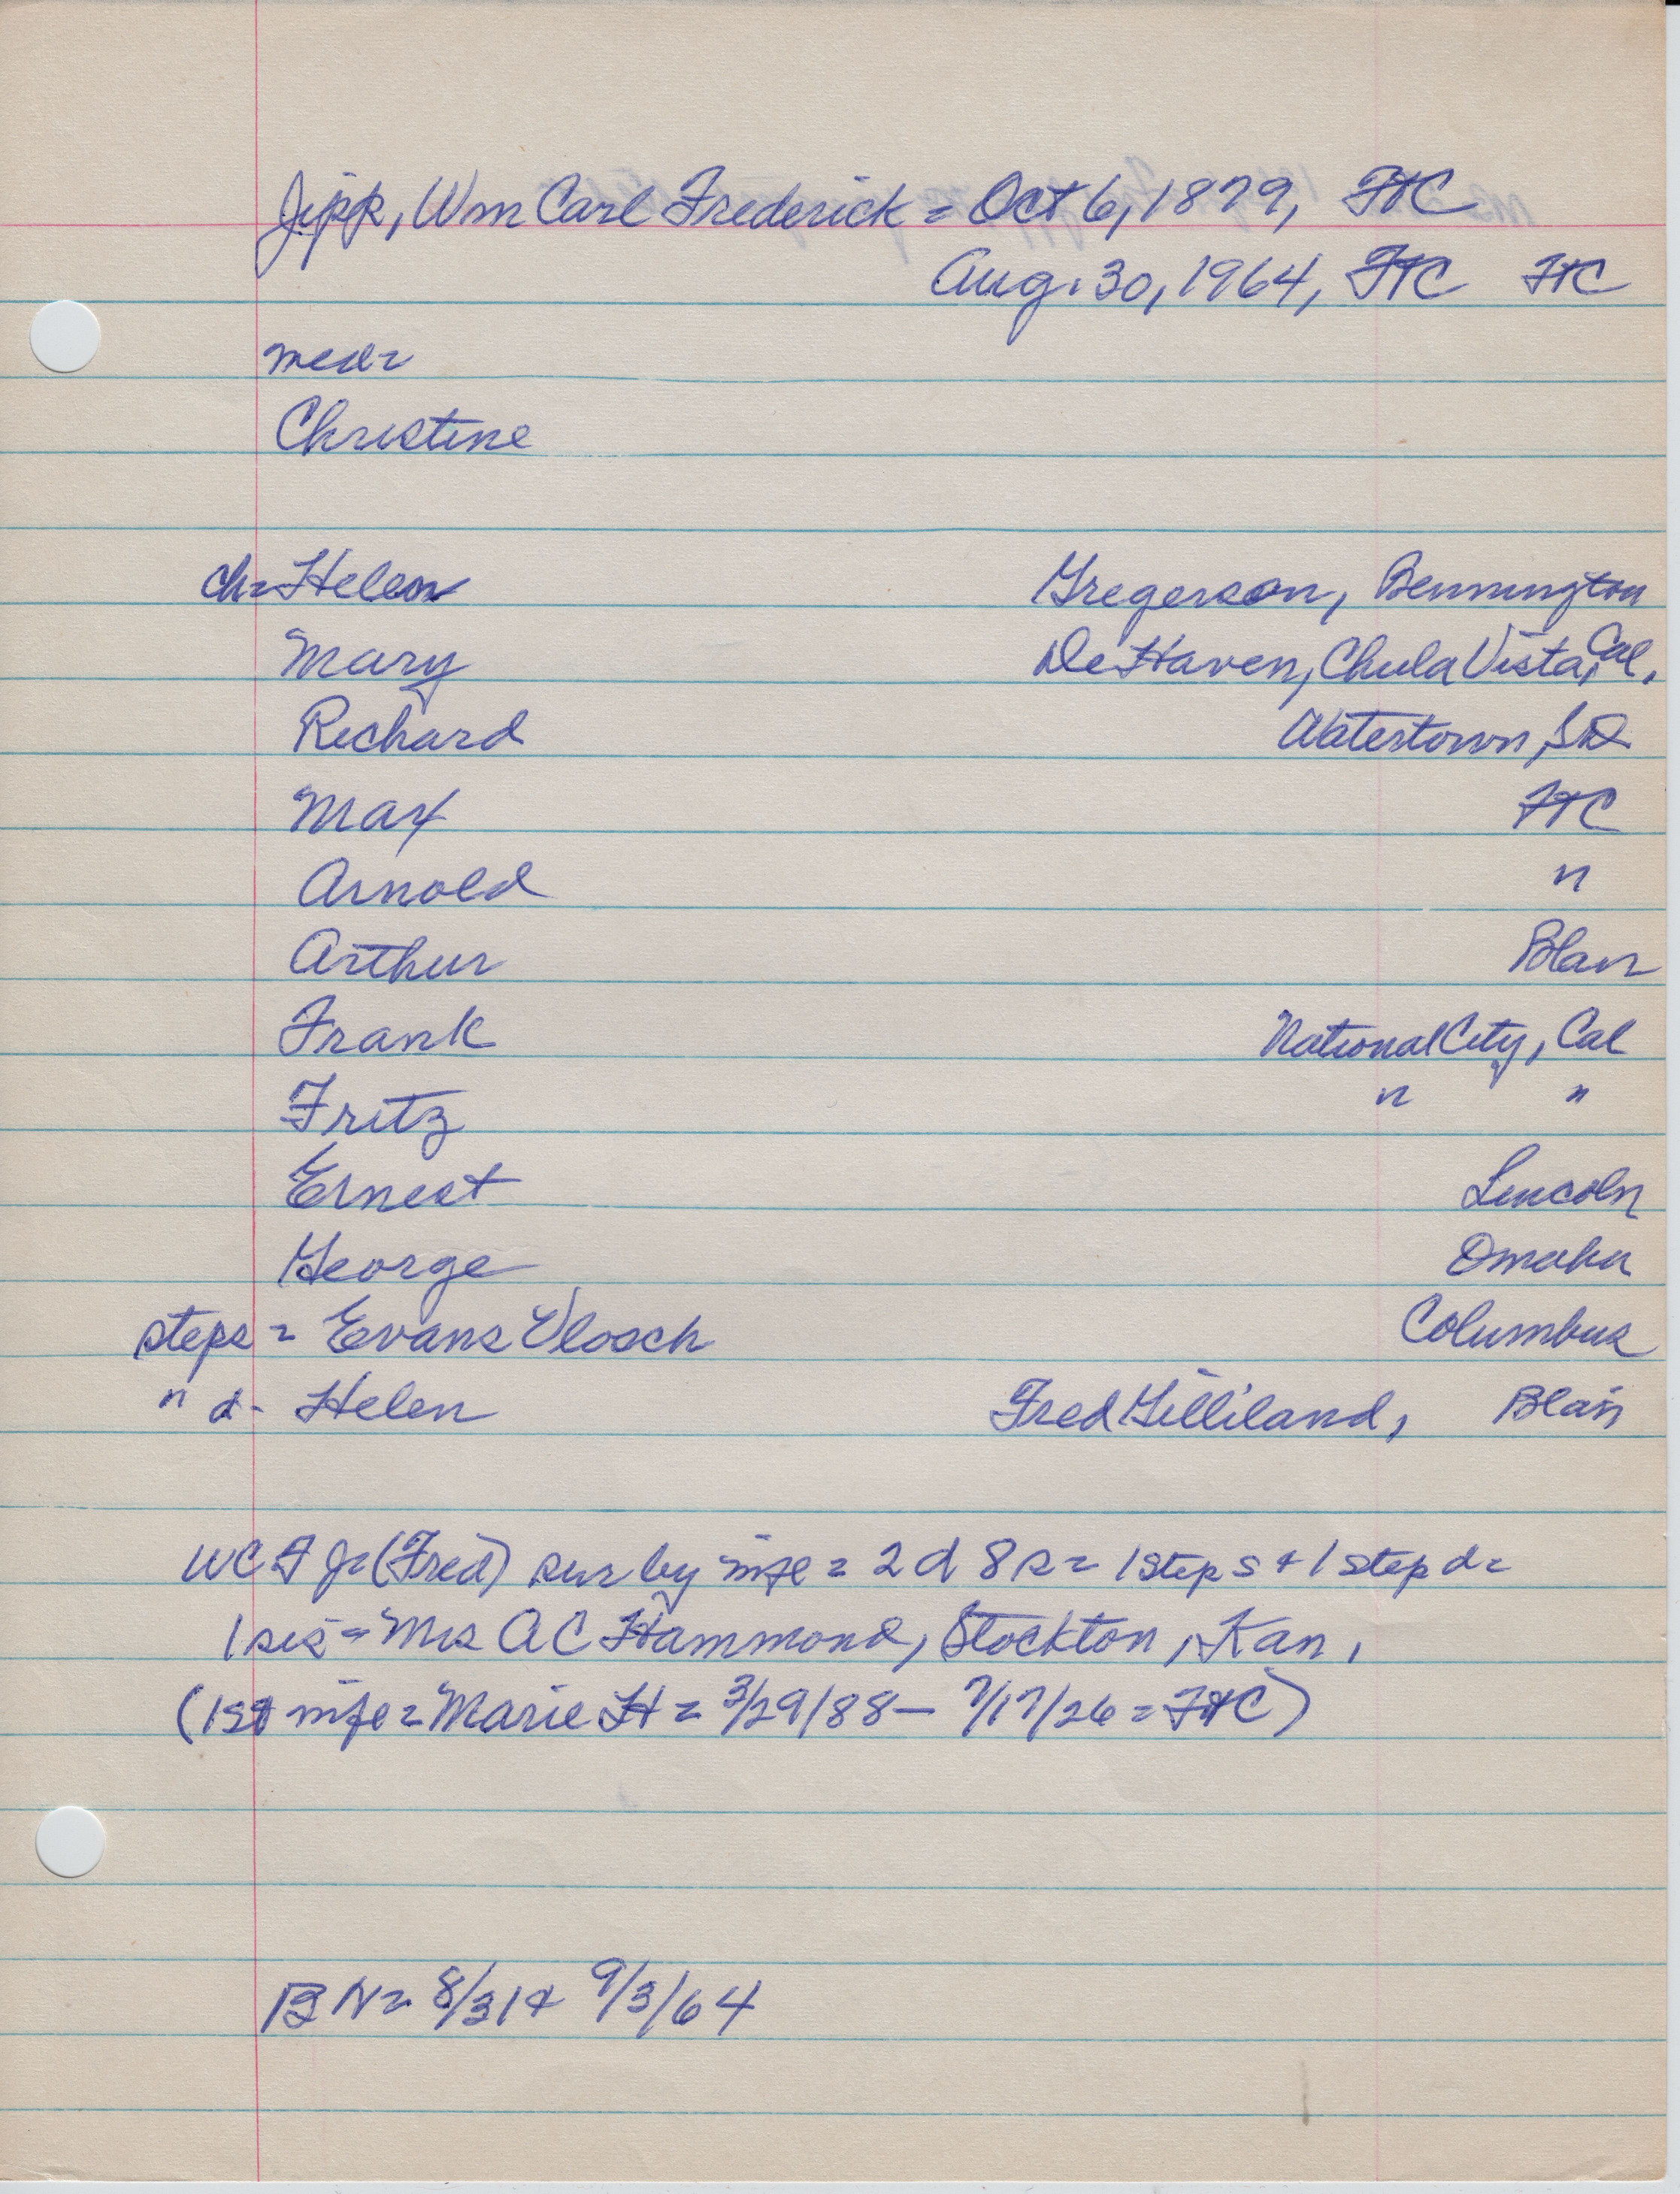 Jipp, Wm Carl Frederick = Oct 6, 1879, FtC
Aug. 30, 1964, FtC FtC
med=
Christine
ch= Helen Gregerson, Bennington
Mary DeHaven, Chula Vista, Cal.
Richard Watertown, SD
Max FtC
Arnold "
Arthur Blair
Frank National City, Cal
Fritz " "
Ernest Lincoln
George Omaha
steps = Evans Vlosch Columbus
" d- Helen Fred Gilliland, Blair
WCF J= (Fred) sur by wife = 2 d 8 s = 1 step s + 1 step d=
1 sis = Mrs A C Hammond, Stockton, Kan,
(1st wife = Marie H = 3/29/88 - 7/17/26 = FtC)
BN= 8/31 + 9/3/64